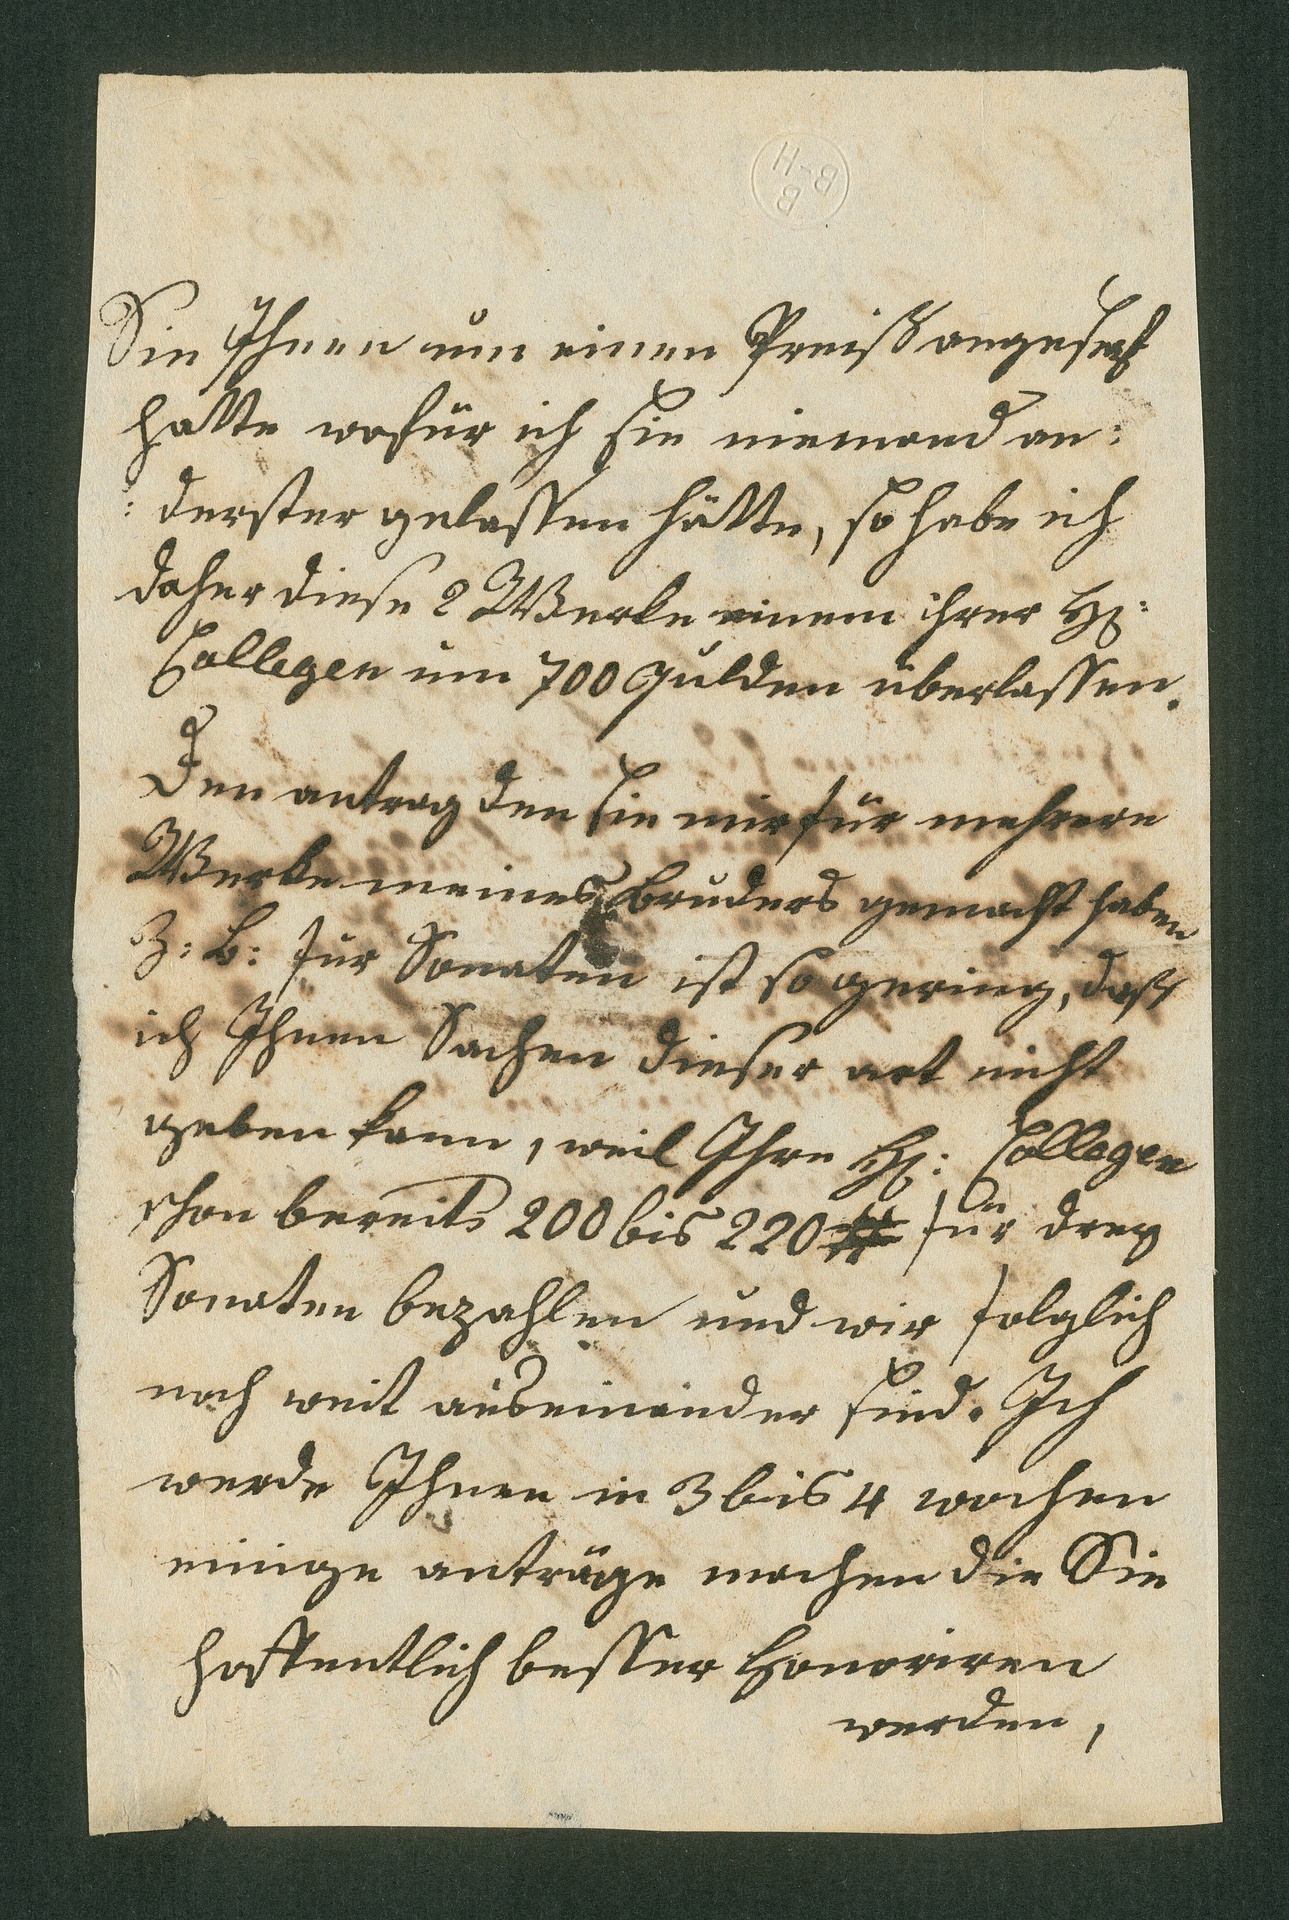 B-H
B
Sie Ihnen um einen Preiß angesezt
hatte wofür ich sie niemand an:
: derster gelassen hätte, so habe ich
daher diese 2 Werke einem ihrer H:
Collegen um 700 Gulden überlassen.
Den antrag den sie mir für mehrere
Werke meines Bruders gemacht haben
Z: B: für Sonaten ist so gering, daß
ich Ihnen Sachen dieser art nicht
geben kann, weil Ihre H: Collegen
schon bereits 200 bis 220 # für drey
Sonaten bezahlen und wir folglich
noch weit auseinander sind. Ich
werde Ihnen in 3 bis 4 wochen
einige anträge machen die Sie
hoffentlich besser Honoriren
werden,